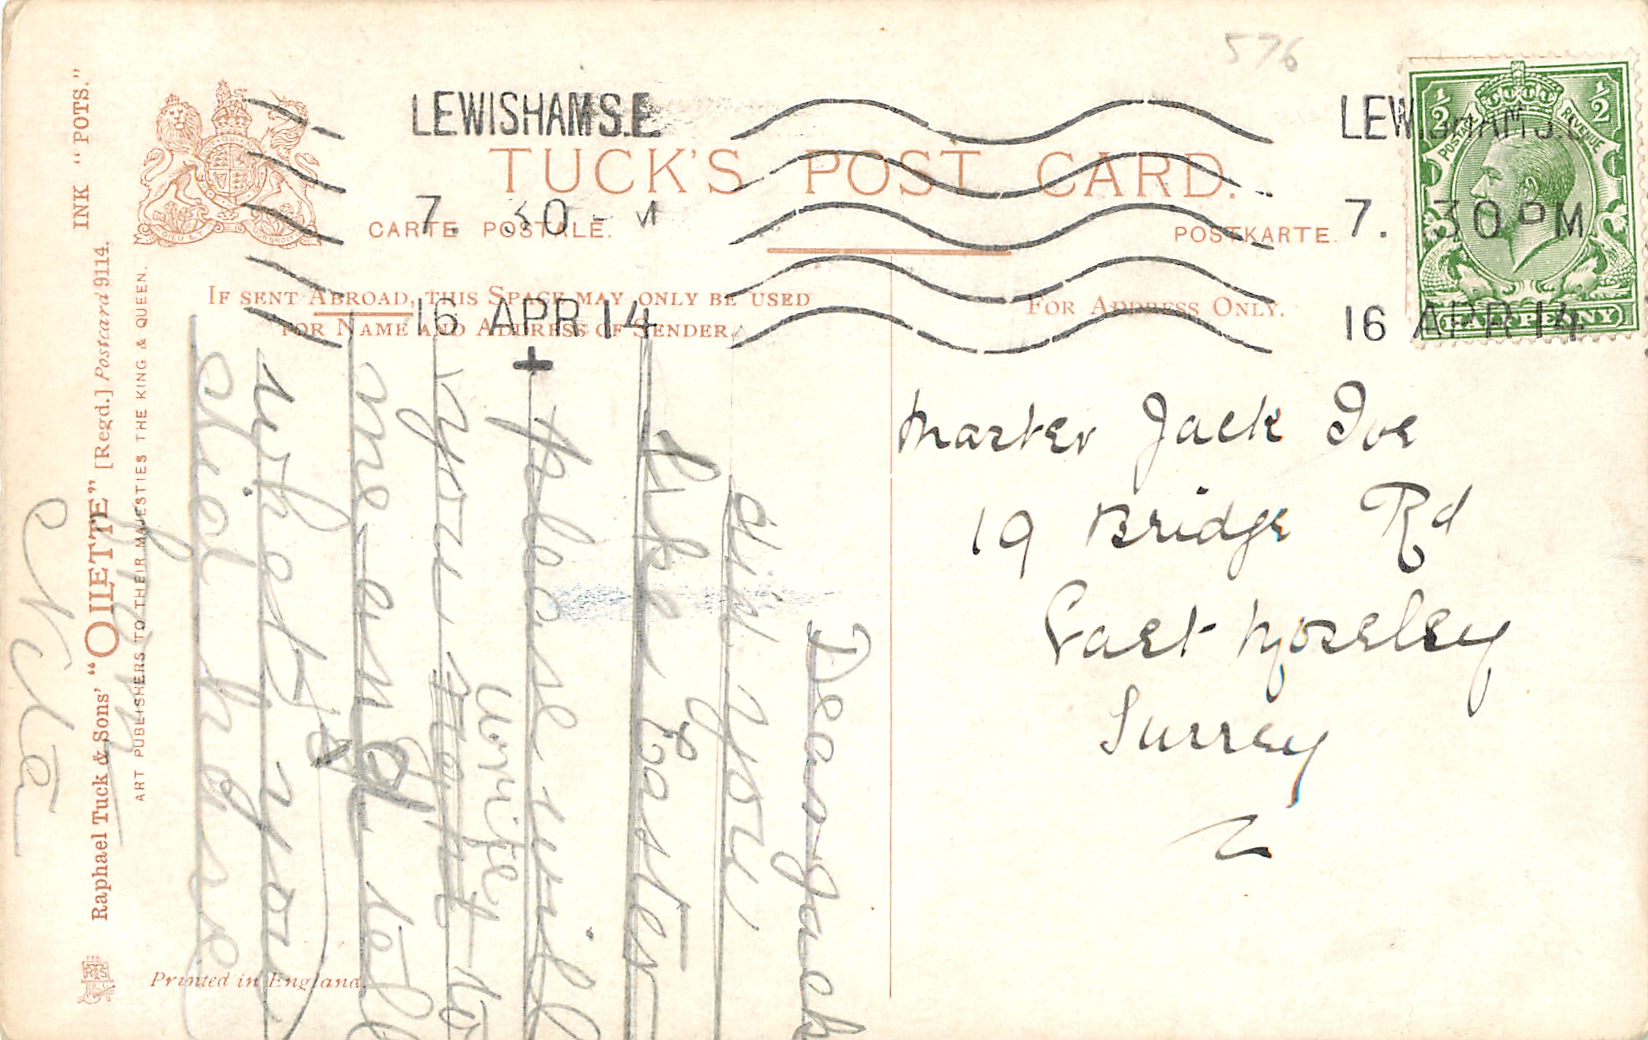 576
LEWISHAM S.E.
7. 30 PM
16 APR 14
LEWISHAM S.
7. 30 PM
16 APR 14
POSTAGE REVENUE
½ ½
HALFPENNY
TUCK'S POST CARD.
CARTE POSTALE.
POSTKARTE.
IF SENT ABROAD, THIS SPACE MAY ONLY BE USED
FOR NAME AND ADDRESS OF SENDER.
FOR ADDRESS ONLY.
Master Jack Ive
19 Bridge Rd
East Moseley
Surrey
Dear Jack
did you
like Easter
please will
you write to
me and tell
what you
did have
from
Nita
INK "POTS."
Raphael Tuck & Sons' "OILETTE" [Regd.] Postcard 9114.
ART PUBLISHERS TO THEIR MAJESTIES THE KING & QUEEN.
Printed in England.